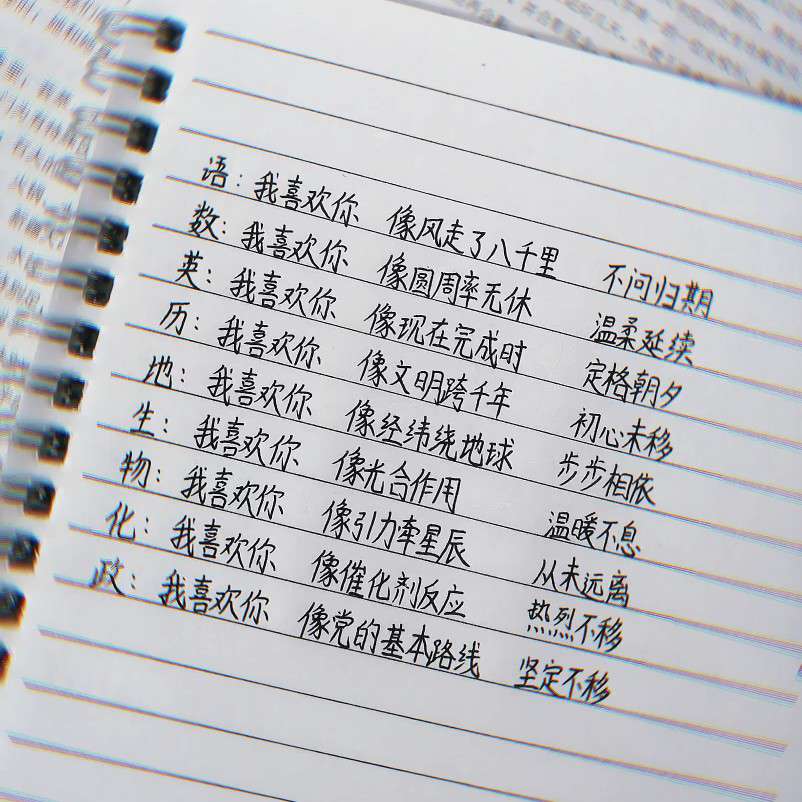 语：我喜欢你 像风走了八千里 不问归期
数：我喜欢你 像圆周率无休 温柔延续
英：我喜欢你 像现在完成时 定格朝夕
历：我喜欢你 像文明跨千年 初心未移
地：我喜欢你 像经纬绕地球 步步相依
生：我喜欢你 像光合作用 温暖不息
物：我喜欢你 像引力牵星辰 从未远离
化：我喜欢你 像催化剂反应 热烈不移
政：我喜欢你 像党的基本路线 坚定不移